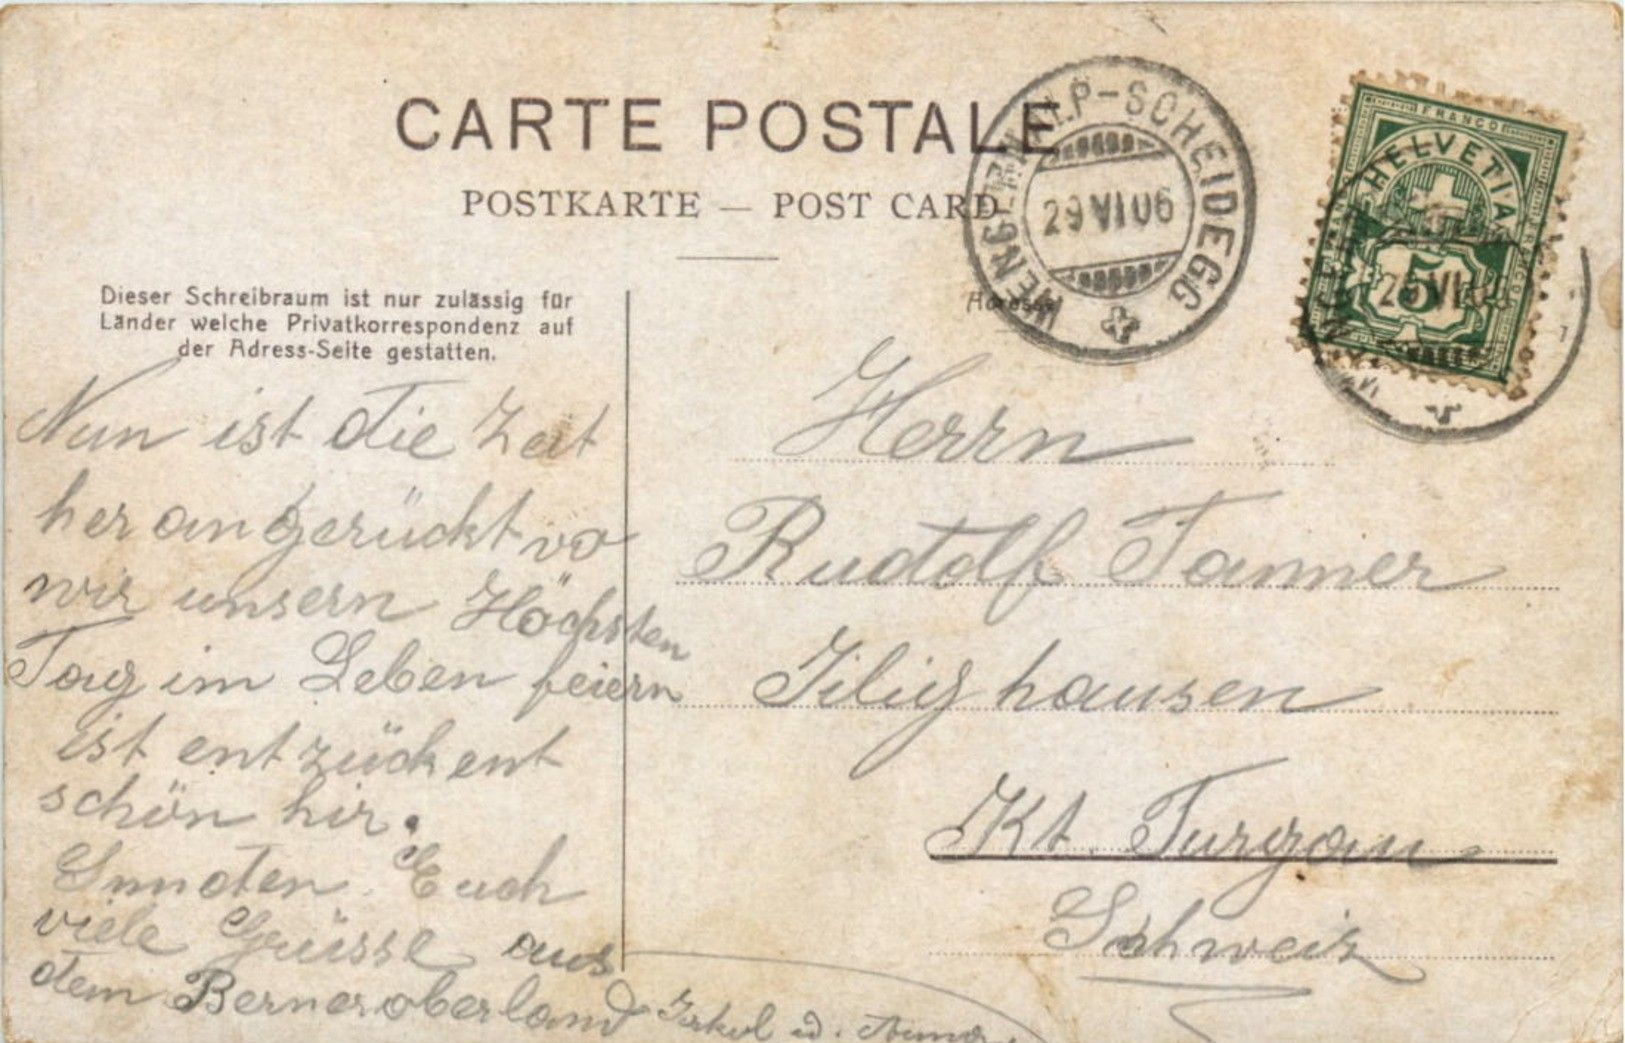 CARTE POSTALE
POSTKARTE — POST CARD
WENGERNALP-SCHEIDEGG
29 VI 06
FRANCO
HELVETIA
5
Dieser Schreibraum ist nur zulässig für
Länder welche Privatkorrespondenz auf
der Adress-Seite gestatten.
Adresse
Nun ist die Zeit
her angerückt wo
wir unsern Höchsten
Tag im Leben feiern
ist entzückent
schön hir.
Senden Euch
viele Grüsse aus
dem Berneroberland
Herrn
Rudolf Tanner
Kt. Turgau
Schweiz